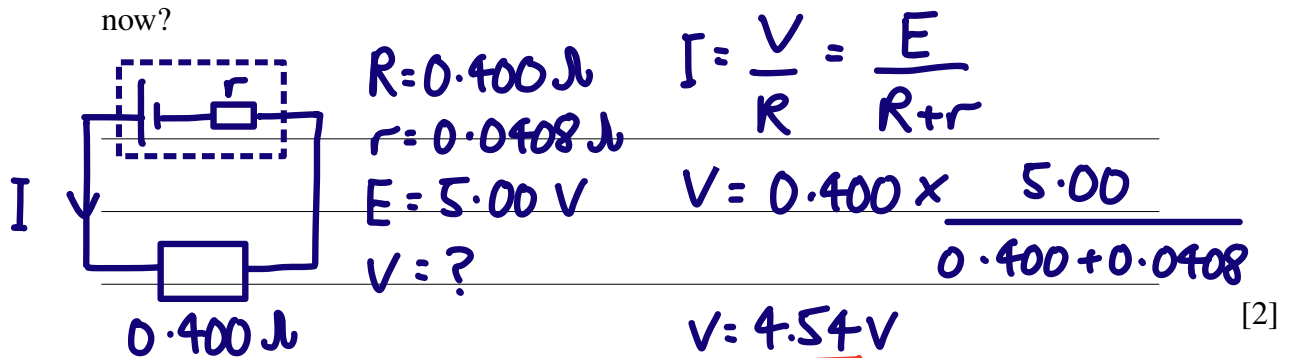 now?
r
I
0.400 Ω
R = 0.400 Ω
r = 0.0408 Ω
E = 5.00 V
V = ?
I = V/R = E/(R+r)
V = 0.400 × 5.00/(0.400 + 0.0408)
V = 4.54 V
[2]